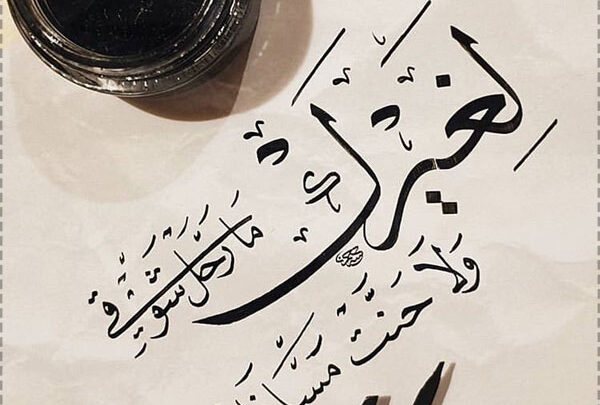 لغيرك
ما رحل شوقي
ولا حنت